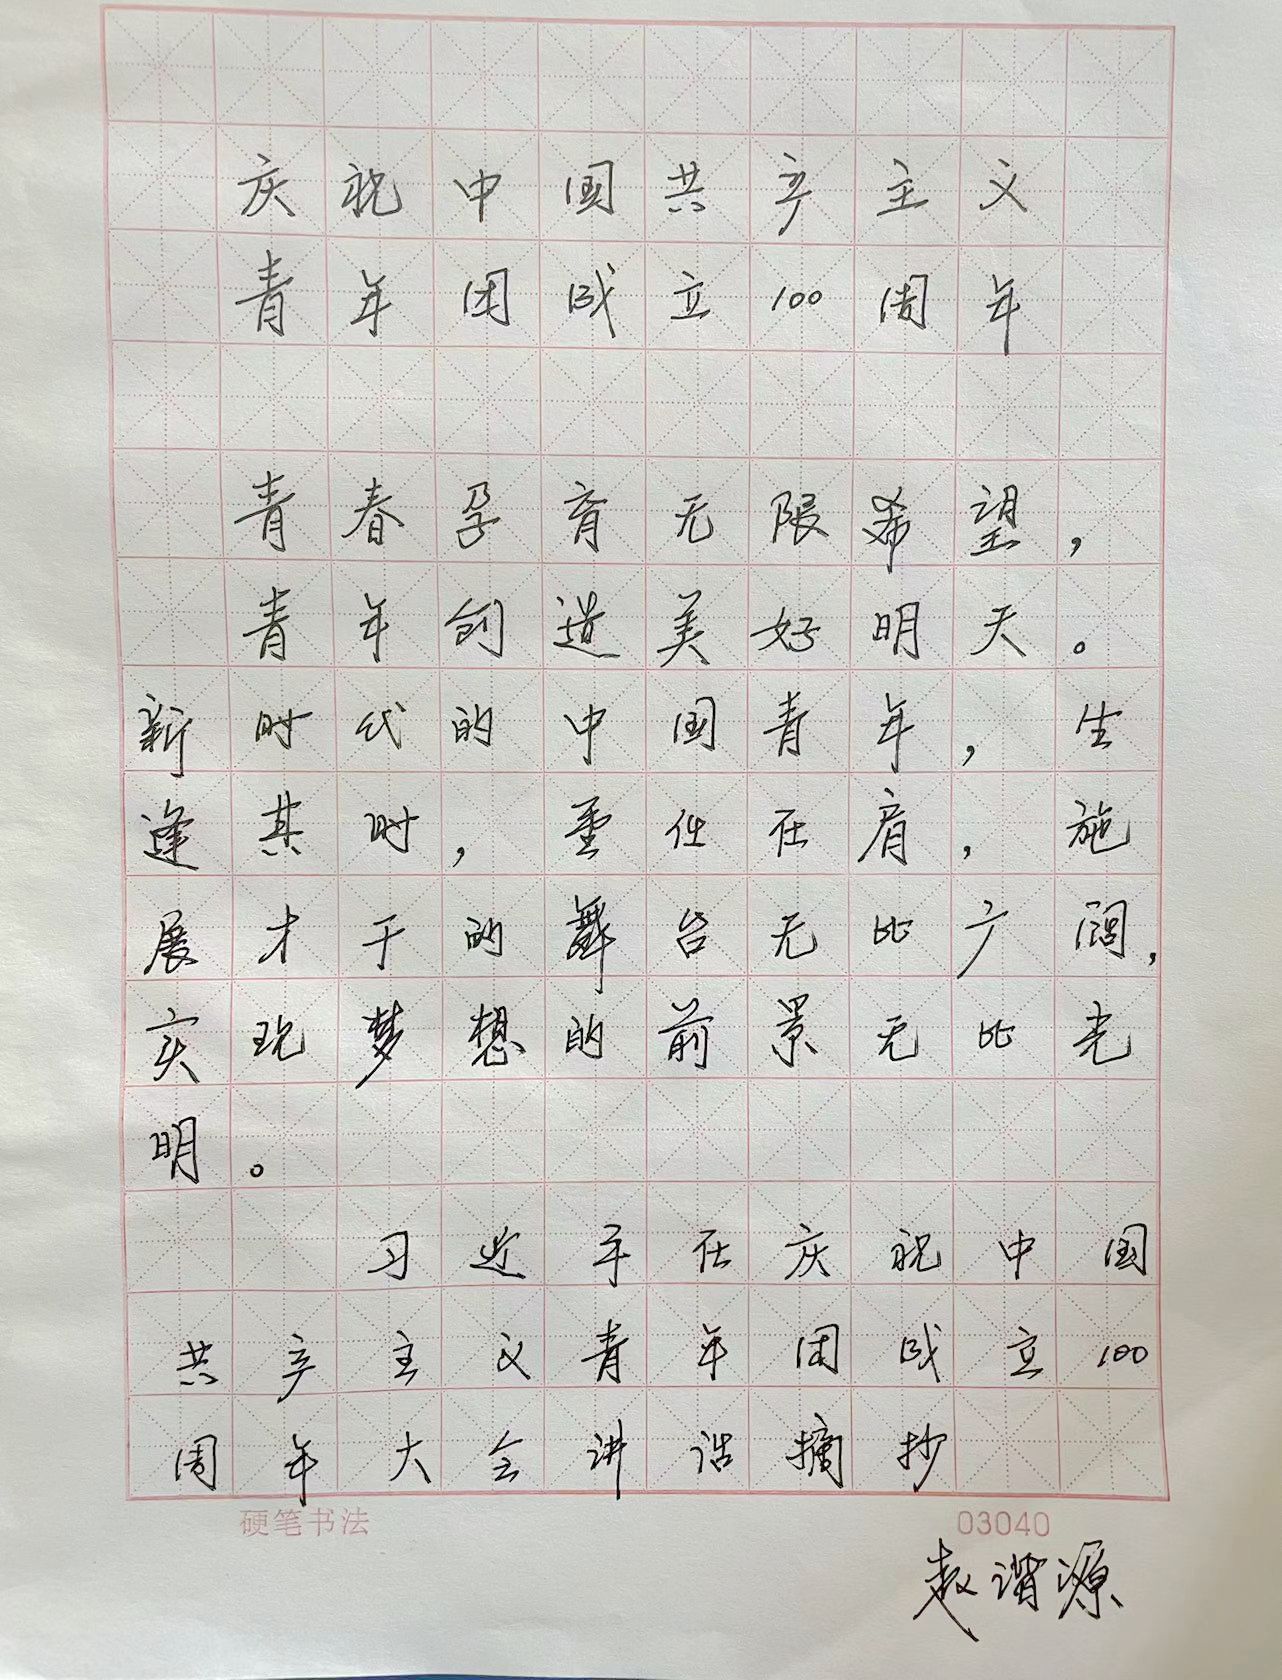 庆祝中国共产主义
青年团成立100周年
青春孕育无限希望，
青年创造美好明天。
新时代的中国青年，生
逢其时，重任在肩，施
展才干的舞台无比广阔，
实现梦想的前景无比光
明。
习近平在庆祝中国
共产主义青年团成立100
周年大会讲话摘抄
硬笔书法 03040
赵谐源